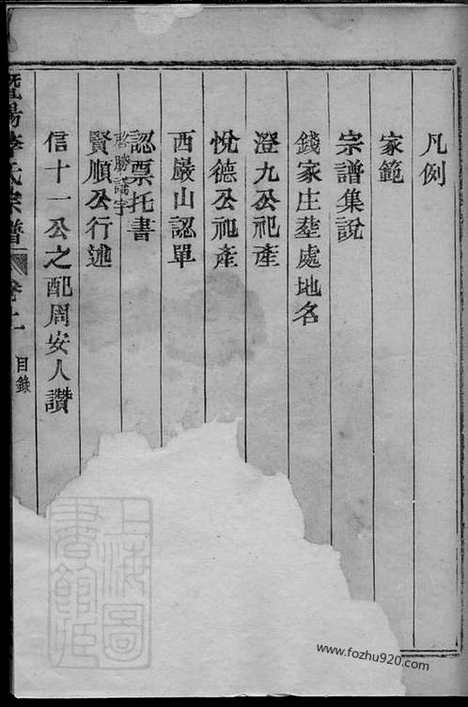 凡例
家範
宗譜集說
錢家庄塋處地名
澄九公祀產
悅德公祀產
西巖山認單
認票托書
啓勝議字
賢順公行述
信十一公之配周安人讚
暨陽李氏宗譜
卷之二
目錄
上海圖書館藏
www.fozhu920.com